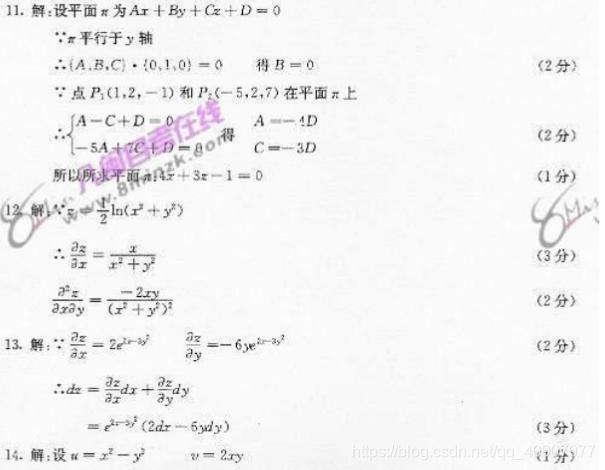 11. 解:设平面π为Ax+By+Cz+D=0
∵π平行于y轴
∴{A,B,C}·{0,1,0}=0 得B=0 (2分)
∵点P₁(1,2,-1)和P₂(-5,2,7)在平面π上
∴{A-C+D=0 得 A=-4D
-5A+7C+D=0 C=-3D (2分)
所以所求平面π:4x+3z-1=0 (1分)
12. 解:∵z=1/2 ln(x²+y²)
∴∂z/∂x=x/(x²+y²) (3分)
∂²z/∂x∂y=-2xy/(x²+y²)² (2分)
13. 解:∵∂z/∂x=2e^(2x-3y²) ∂z/∂y=-6ye^(2x-3y²) (2分)
∴dz=∂z/∂x dx+∂z/∂y dy
=e^(2x-3y²)(2dx-6ydy) (3分)
14. 解:设u=x²-y² v=2xy (1分)
自考在线